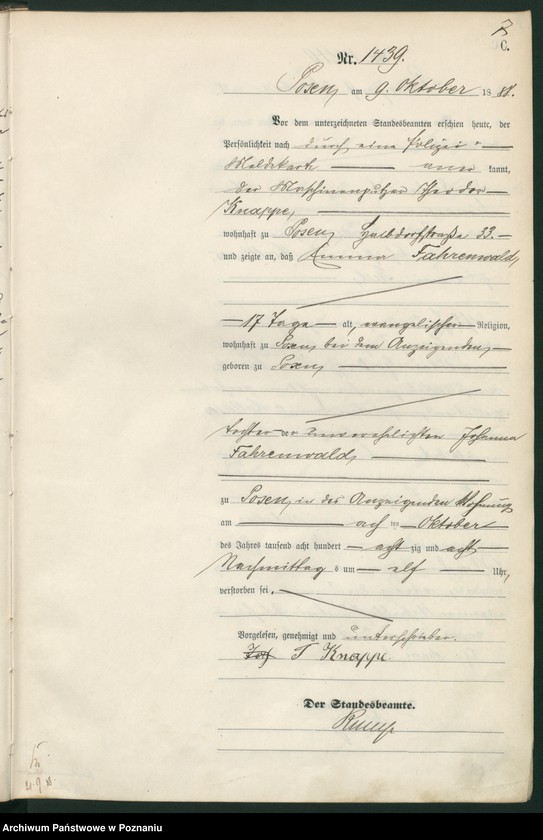 C.
Nr. 1439.
Posen, am 9. Oktober 1888.
Vor dem unterzeichneten Standesbeamten erschien heute, der
Persönlichkeit nach durch eine Polizei-
Meldekarte — aner kannt,
der Maschinenputzer Theodor
Knappe,
wohnhaft zu Posen, Halbdorfstraße 33.
und zeigte an, daß Emma Fahrenwald,
17 Tage alt, evangelischer Religion,
wohnhaft zu Posen, bei dem Anzeigenden,
geboren zu Posen,
Tochter der unverehelichten Johanna
Fahrenwald,
zu Posen, in des Anzeigenden Wohnung
am acht ten Oktober
des Jahres tausend acht hundert acht zig und acht
Nachmittag s um elf Uhr,
verstorben sei.
Vorgelesen, genehmigt und unterschrieben.
T Knappe
Der Standesbeamte.
Archiwum Państwowe w Poznaniu